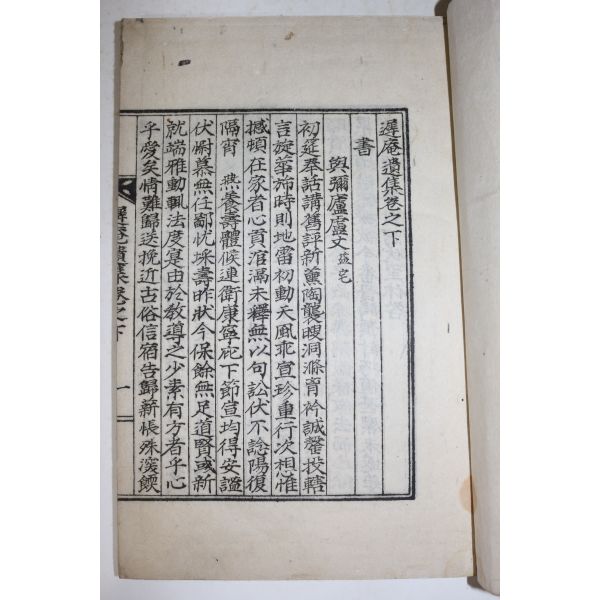 遲庵遺集卷之下
書
與彌廬盧丈
初延奉話講舊評新薰陶襲 洞滌胷衿誠罄投轄
言旋華旆時則地雷初動天風乖宣珍重行次想惟
撼頓在家者心貢涫滿未釋無以句訟伏不諗陽復
隔宵 燕養壽體候連衛康寧庇下節宣均得安謐
伏慰慕無任鄙忱採壽昨狀今保餘無足道賢咸新
就端雅動輒法度寔由於教導之少素有方者乎心
乎愛矣情難歸送挽近古俗信宿告歸薪悵殊深餪
遲庵遺集卷之下
一